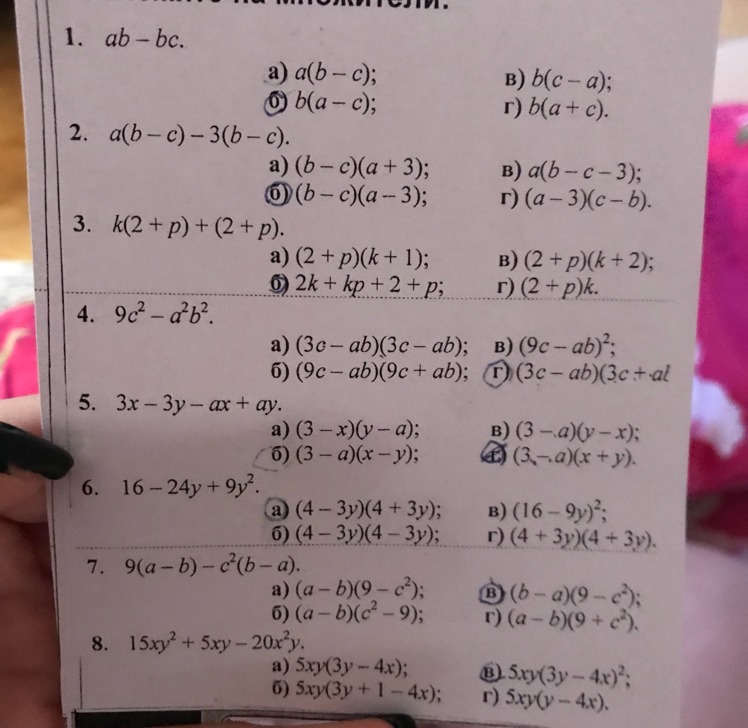 на множители.
1. ab – bc.
а) a(b – c); в) b(c – a);
б) b(a – c); г) b(a + c).
2. a(b – c) – 3(b – c).
а) (b – c)(a + 3); в) a(b – c – 3);
б) (b – c)(a – 3); г) (a – 3)(c – b).
3. k(2 + p) + (2 + p).
а) (2 + p)(k + 1); в) (2 + p)(k + 2);
б) 2k + kp + 2 + p; г) (2 + p)k.
4. 9c² – a²b².
а) (3c – ab)(3c – ab); в) (9c – ab)²;
б) (9c – ab)(9c + ab); г) (3c – ab)(3c + ab
5. 3x – 3y – ax + ay.
а) (3 – x)(y – a); в) (3 – a)(y – x);
б) (3 – a)(x – y); г) (3 – a)(x + y).
6. 16 – 24y + 9y².
а) (4 – 3y)(4 + 3y); в) (16 – 9y)²;
б) (4 – 3y)(4 – 3y); г) (4 + 3y)(4 + 3y).
7. 9(a – b) – c²(b – a).
а) (a – b)(9 – c²); в) (b – a)(9 – c²);
б) (a – b)(c² – 9); г) (a – b)(9 + c²).
8. 15xy² + 5xy – 20x²y.
а) 5xy(3y – 4x); в) 5xy(3y – 4x)²;
б) 5xy(3y + 1 – 4x); г) 5xy(y – 4x).